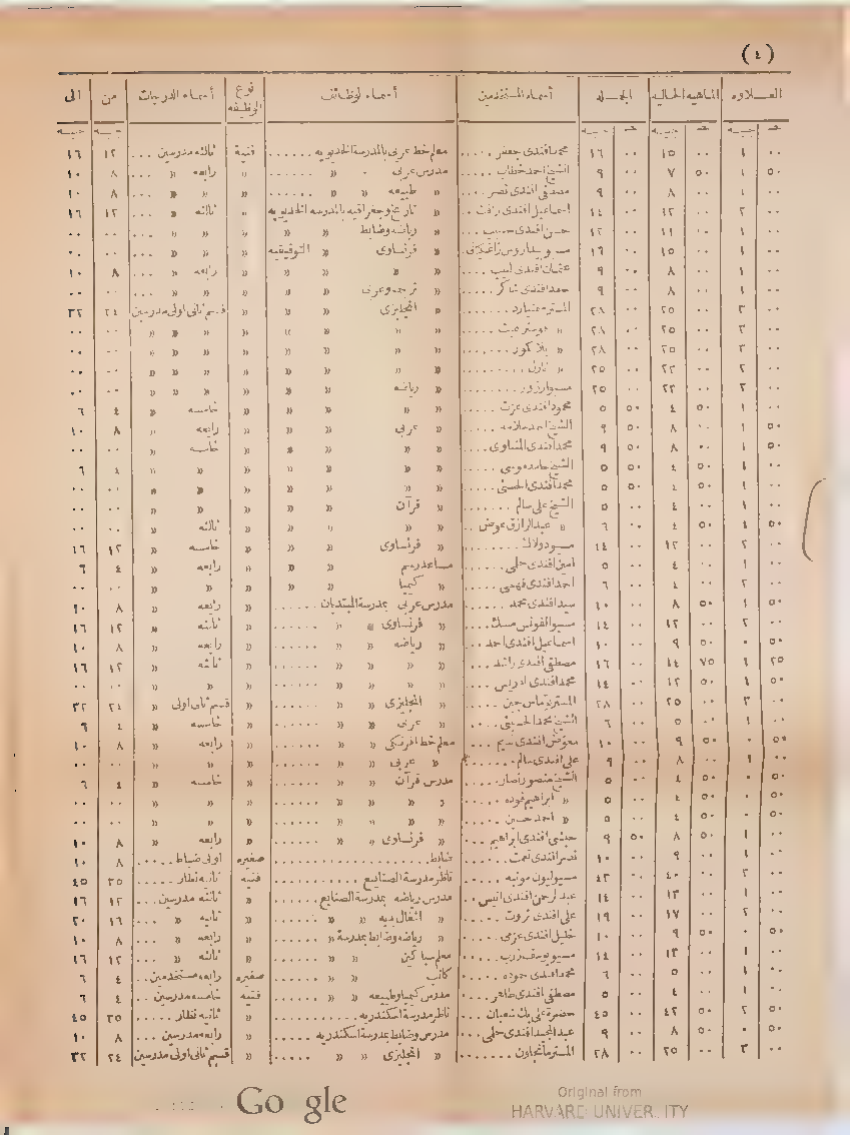 (٤)
العــلاوه الماهيه الحاليه الجملة أسماء المستخدمين أسماء لوظائف نوع الوظيفه أسماء الدرجات من الى
جنيه جنيه جنيه جنيه جنيه
٠٠ ١ ٠٠ ١٥ ٠٠ ١٦ محمد افندى جعفر ..... معلم خط عربى بالمدرسة الخديويه ...... فنية ثالثه مدرسين ... ١٢ ١٦
٥٠ ١ ٥٠ ٧ ٠٠ ٩ الشيخ احمد خطاب .... مدرس عربى » » ...... » رابعه » ... ٨ ١٠
٠٠ ١ ٠٠ ٨ ٠٠ ٩ مصطفى افندى نصر .... » طبيعه » » ...... » » » ... ٨ ١٠
٠٠ ٢ ٠٠ ١٢ ٠٠ ١٤ اسماعيل افندى رفعت .. » تاريخ وجغرافيه بالمدرسه الخديويه » ثالثه » ... ١٢ ١٦
٠٠ ١ ٠٠ ١١ ٠٠ ١٢ حسن افندى حسيب .... » رياضه وضابط » » » » » ... ٠٠ ٠٠
٠٠ ١ ٠٠ ١٥ ٠٠ ١٦ » فرنساوى » التوفيقيه » » » ... ٠٠ ٠٠
٠٠ ١ ٠٠ ٨ ٠٠ ٩ عثمان افندى لبيب ..... » » » » » رابعه » ... ٨ ١٠
٠٠ ١ ٠٠ ٨ ٠٠ ٩ حمد افندى شاكر ..... » ترجمه وعربى » » » » » ... ٠٠ ٠٠
٠٠ ٣ ٠٠ ٢٥ ٠٠ ٢٨ المستر ..... » انجليزى » » » قسم ثانى اولى مدرسين ٢٤ ٣٢
٠٠ ٣ ٠٠ ٢٥ ٠٠ ٢٨ » .... » » » » » » » » » ٠٠ ٠٠
٠٠ ٣ ٠٠ ٢٥ ٠٠ ٢٨ » ...... » » » » » » » » » ٠٠ ٠٠
٠٠ ٢ ٠٠ ٢٣ ٠٠ ٢٥ » ......... » » » » » » » » » ٠٠ ٠٠
٠٠ ٢ ٠٠ ٢٣ ٠٠ ٢٥ ....... » رياضه » » » » » » » ٠٠ ٠٠
٠٠ ١ ٥٠ ٤ ٥٠ ٥ محمود افندى عزت ...... » » » » » خامسه » ٤ ٦
٥٠ ١ ٠٠ ٨ ٥٠ ٩ الشيخ احمد ..... » عربى » » » رابعه » ٨ ١٠
٥٠ ١ ٠٠ ٨ ٥٠ ٩ محمد افندى المنياوى ..... » » » » » خامسه » ٠٠ ٠٠
٠٠ ١ ٥٠ ٤ ٥٠ ٥ الشيخ حامد موسى ..... » » » » » » » ٤ ٦
٠٠ ١ ٥٠ ٤ ٥٠ ٥ محمد افندى الحسنى ..... » » » » » » » ٠٠ ٠٠
٠٠ ١ ٠٠ ٤ ٠٠ ٥ الشيخ على سالم ....... » قرآن » » » » » ٠٠ ٠٠
٥٠ ١ ٥٠ ٤ ٠٠ ٦ » عبد الرازق عوض .. » » » » » ثالثه » ٠٠ ٠٠
٠٠ ٢ ٠٠ ١٢ ٠٠ ١٤ ........ » فرنساوى » » » خامسه » ١٢ ١٦
٠٠ ١ ٠٠ ٤ ٠٠ ٥ امين افندى حلمى ...... مساعد رسم » » » رابعه » ٤ ٦
٠٠ ٢ ٠٠ ٤ ٠٠ ٦ احمد افندى فهمى ...... » كيميا » » » » » ٠٠ ٠٠
٥٠ ١ ٥٠ ٨ ٠٠ ١٠ سيد افندى محمد ...... مدرس عربى بمدرسة المبتديان ..... » رابعه » ٨ ١٠
٠٠ ٢ ٠٠ ١٢ ٠٠ ١٤ مسيو الفونس مسك .... » فرنساوى » » ...... » ثالثه » ١٢ ١٦
٥٠ ٠ ٥٠ ٩ ٠٠ ١٠ اسماعيل افندى احمد ... » رياضه » » ...... » رابعه » ٨ ١٠
٢٥ ١ ٧٥ ١٤ ٠٠ ١٦ مصطفى افندى راشد .... » » » » ...... » ثالثه » ١٢ ١٦
٥٠ ١ ٥٠ ١٢ ٠٠ ١٤ محمد افندى ادريس ..... » » » » ...... » » » ٠٠ ٠٠
٠٠ ٣ ٠٠ ٢٥ ٠٠ ٢٨ المستر توماس جين ..... » انجليزى » » ...... » قسم ثانى اولى » ٢٤ ٣٢
٠٠ ١ ٠٠ ٥ ٠٠ ٦ الشيخ محمد الحسينى .... » عربى » » ...... » خامسه » ٤ ٦
٥٠ ٠ ٥٠ ٩ ٠٠ ١٠ معوض افندى ... معلم خط افرنكى » » ...... » رابعه » ٨ ١٠
٠٠ ١ ٠٠ ٨ ٠٠ ٩ على افندى سالم ........ » » عربى » » ...... » » » ٠٠ ٠٠
٥٠ ٠ ٥٠ ٤ ٠٠ ٥ الشيخ منصور نصار ..... مدرس قرآن » » ...... » خامسه » ٤ ٦
٥٠ ٠ ٥٠ ٤ ٠٠ ٥ » ابراهيم فوده ...... » » » » ...... » » » ٠٠ ٠٠
٥٠ ٠ ٥٠ ٤ ٠٠ ٥ » احمد حسين ....... » » » » ...... » » » ٠٠ ٠٠
٠٠ ١ ٥٠ ٨ ٥٠ ٩ حبشى افندى ابراهيم .... » فرنساوى » » ...... » رابعه » ٨ ١٠
٠٠ ١ ٠٠ ٩ ٠٠ ١٠ نصر افندى ....... ضابط ................... صغيره اولى ضباط ..... ٨ ١٠
٠٠ ٢ ٠٠ ٤٠ ٠٠ ٤٢ مسيو ليون ...... ناظر مدرسة الصنايع ......... فنيه ثانيه نظار ..... ٣٥ ٤٥
٠٠ ١ ٠٠ ١٣ ٠٠ ١٤ عبد الرحمن افندى انيس .. مدرس رياضه بمدرسة الصنايع ...... » ثالثه مدرسين .... ١٢ ١٦
٠٠ ٢ ٠٠ ١٧ ٠٠ ١٩ على افندى ثروت ....... » اشغال يديه » » ........ » ثانيه » ... ١٦ ٢٠
٥٠ ٠ ٥٠ ٩ ٠٠ ١٠ خليل افندى عزمى ...... » رياضه وضابط بمدرسة » ..... » رابعه » ... ٨ ١٠
٠٠ ١ ٠٠ ١٣ ٠٠ ١٤ مسيو يوسف ..... معلم سباكين » » ........ » ثالثه » ... ١٢ ١٦
٠٠ ١ ٠٠ ٥ ٠٠ ٦ محمد افندى حموده ..... كاتب » » ........ صغيره رابعه مستخدمين .... ٤ ٦
٠٠ ١ ٠٠ ٤ ٠٠ ٥ مصطفى افندى طاهر ..... مدرس كيميا وطبيعه » » ...... فنيه خامسه مدرسين ... ٤ ٦
٥٠ ٢ ٥٠ ٤٢ ٠٠ ٤٥ حضرة على بك شعبان .... ناظر مدرسة اسكندريه ........ » ثانيه نظار ..... ٣٥ ٤٥
٥٠ ٠ ٥٠ ٨ ٠٠ ٩ عبد المجيد افندى حلمى .. مدرس وضابط بمدرسة اسكندريه .... » رابعه مدرسين .... ٨ ١٠
٠٠ ٣ ٠٠ ٢٥ ٠٠ ٢٨ المستر ....... » انجليزى » » ..... » قسم ثانى اولى مدرسين ٢٤ ٣٢
Go gle
Original from
HARVARD UNIVERSITY